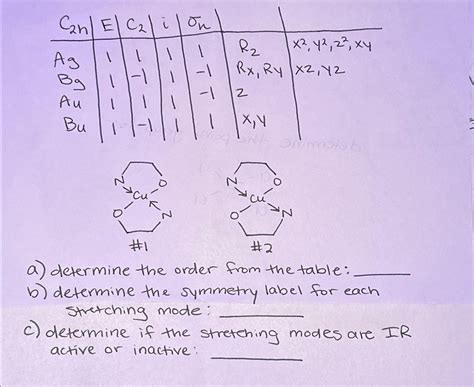 C₂h E C₂ i σh
Ag 1 1 1 1 Rz x², y², z², xy
Bg 1 -1 1 -1 Rx, Ry xz, yz
Au 1 1 1 -1 z
Bu 1 -1 1 1 x, y
N O N O
Cu Cu
O N O N
#1 #2
a) determine the order from the table:
b) determine the symmetry label for each
stretching mode:
c) determine if the stretching modes are IR
active or inactive: